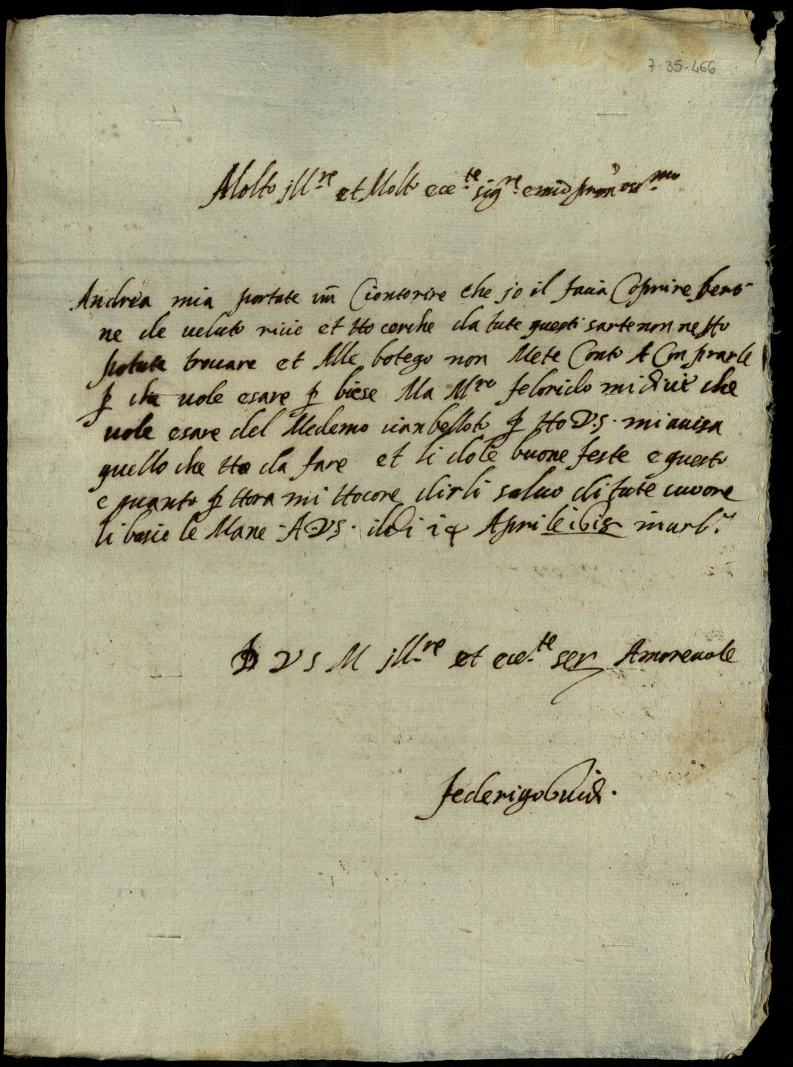 7-35-466
Molto ill.re et Molto ece.te sig.re e mio
Andrea mia portate un Cientorire che io il facia Coprire beno
ne de veluto ricie et tto cerche da tute questi sarte non ne tto
potute trovare et Alle botego non Mete Conto A Conprarle
p che vole esare p biese Ma M.re felorido mi dicie che
vole esare del Medemo p tto VS. mi avisa
quello che tto da fare et li do le buone feste e questo
e quanto p ttora mi ttocore dirli salvo di tute cuvore
li bacio le Mane A VS. il di Aprile in
D VS M ill.re et ece.te ser Amorevole
federigo Guidi.